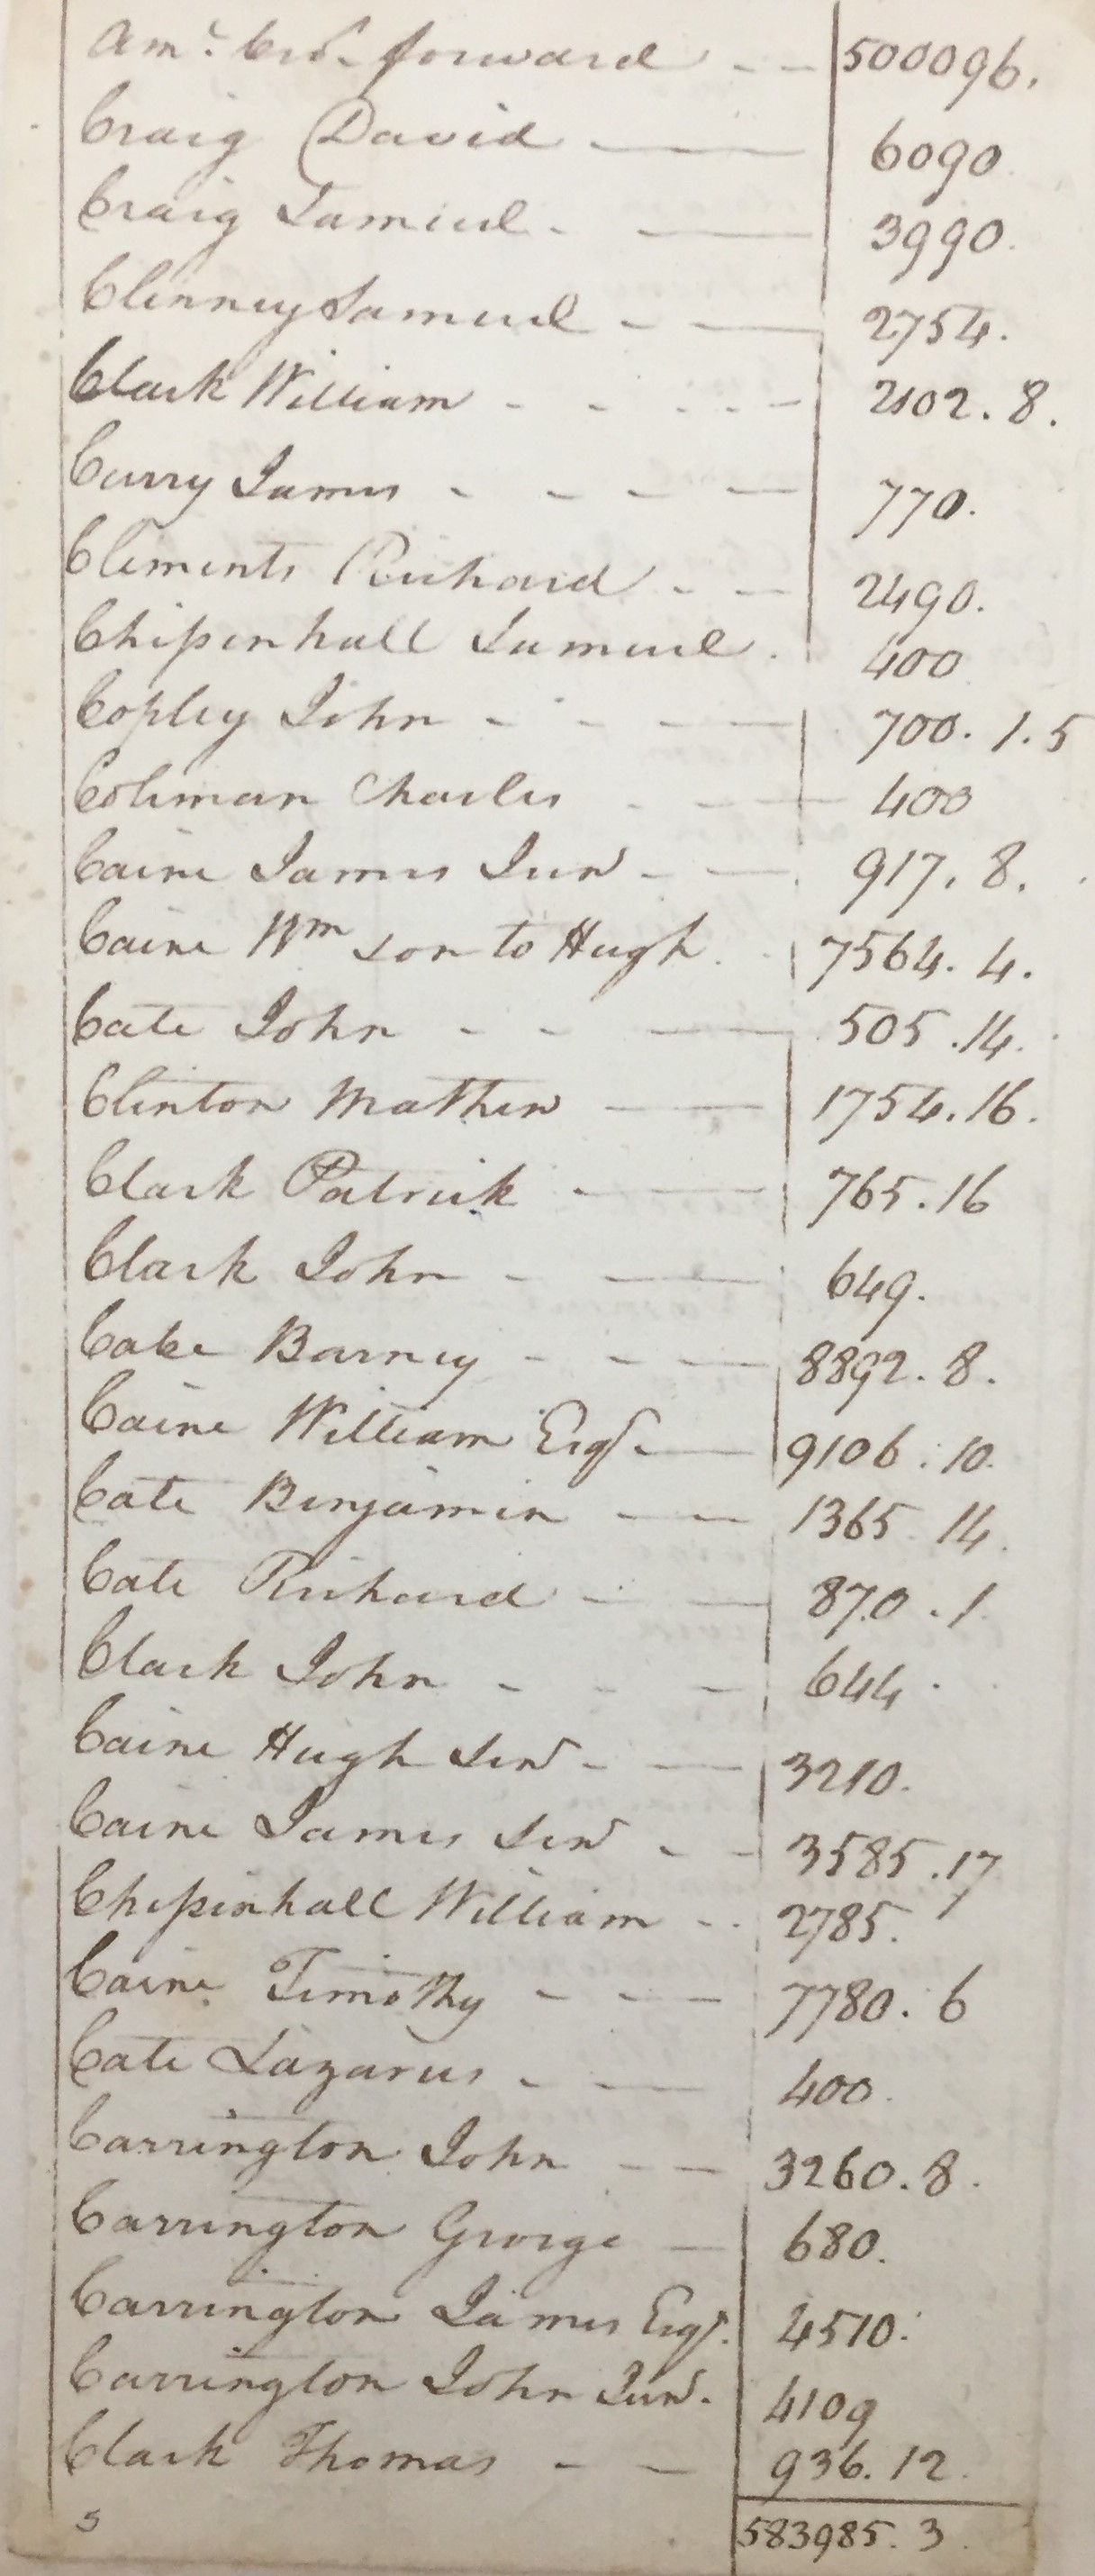 Amt. bro. forward - - 500096.
Craig David 6090
Craig Samuel. 3990.
Clenney Samuel - 2754.
Clark William - - - - - 2102. 8.
Curry James - - - - 770.
Clements Richard - - 2490.
Chipenhall Samuel. 400
Copley John - - - 700. 1. 5
Coleman Charles - - 400
Caine James Junr - - 917. 8.
Caine Wm son to Hugh. 7564. 4.
Cate John - - - 505. 14.
Clinton Mathew 1754. 16.
Clark Patrick - 765. 16
Clark John - 649.
Cabe Barney - - - 8892. 8.
Caine William Esqr. 9106. 10.
Cate Benjamin - - 1365. 14.
Cate Richard - - 870. 1.
Clark John - - - 644.
Caine Hugh Senr - - 3210.
Caine James Senr - - 3585. 17
Chipenhall William - - 2785.
Caine Timothy - - - 7780. 6
Cate Lazarus - - 400.
Carrington John - - 3260. 8.
Carrington George - 680.
Carrington James Esqr. 4510.
Carrington John Junr. 4109
Clark Thomas - - 936. 12.
5 583985. 3.